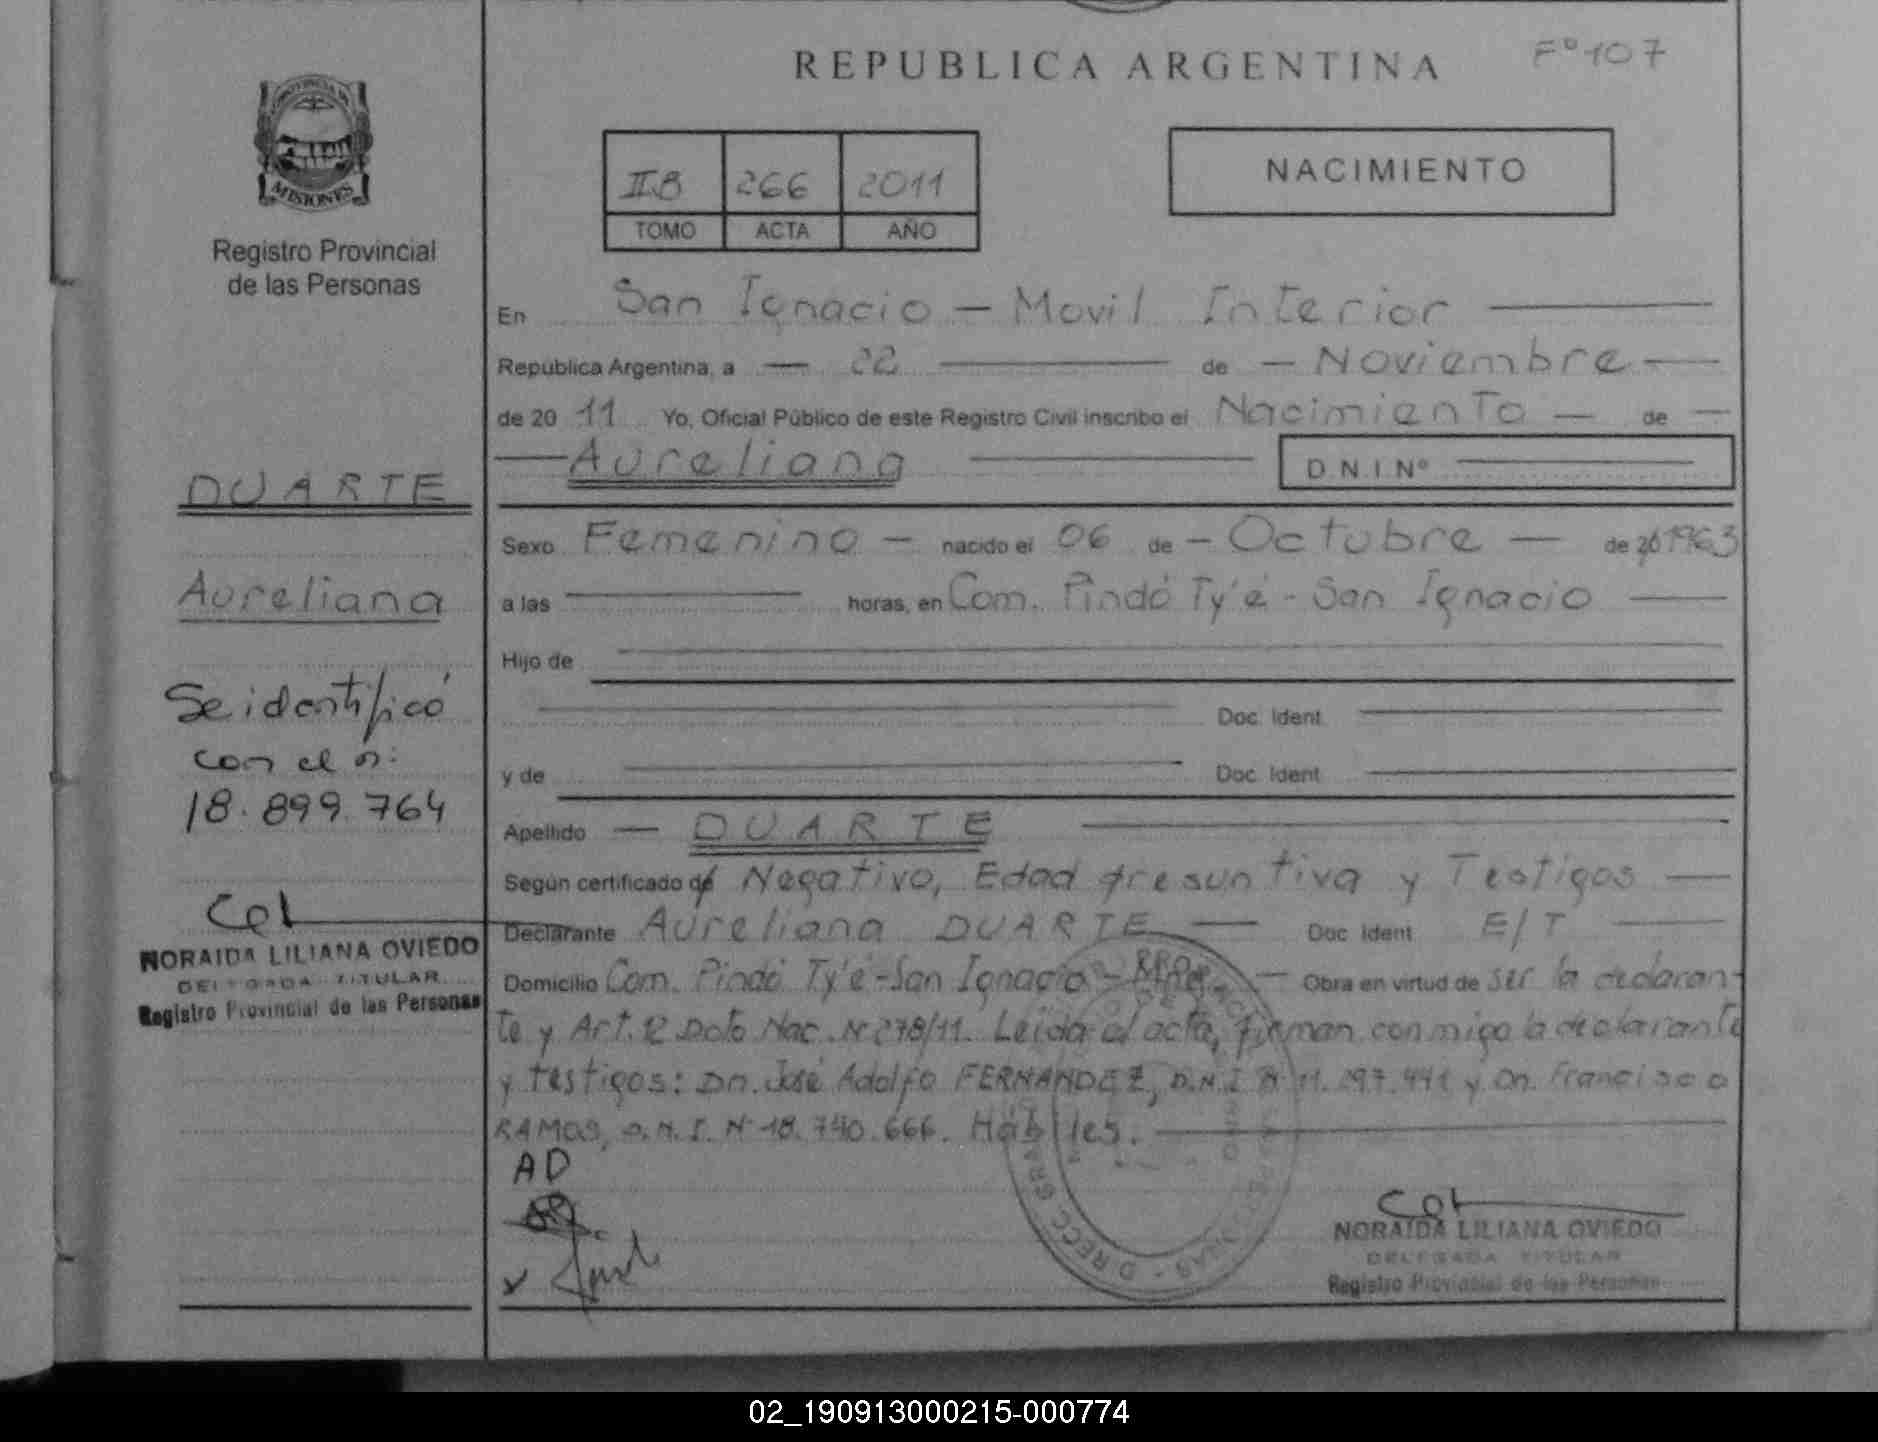 REPUBLICA ARGENTINA
Fº 107
PROVINCIA DE
MISIONES
Registro Provincial
de las Personas
IIB 266 2011
TOMO ACTA AÑO
NACIMIENTO
En San Ignacio - Movil Interior
Republica Argentina, a - 22 de - Noviembre
de 20 11 Yo, Oficial Público de este Registro Civil inscribo el Nacimiento - de
Aureliana
D.N.I Nº
DUARTE
Aureliana
Se identificó
con el n:
18.899.764
NORAIDA LILIANA OVIEDO
DELEGADA TITULAR
Registro Provincial de las Personas
Sexo Femenino - nacido el 06 de - Octubre - de 20 1963
a las horas, en Com. Pindó Ty'é - San Ignacio
Hijo de
Doc. Ident.
y de Doc. Ident.
Apellido - DUARTE
Según certificado de Negativo, Edad presuntiva y Testigos
Declarante Aureliana DUARTE - Doc Ident E/T
Domicilio Com. Pindó Ty'é - San Ignacio - Obra en virtud de ser la declaran-
te y Art. 2 Dcto Nac. Nº 278/11. Leida el acta, firman conmigo la declarante
y testigos: Dn. José Adolfo FERNANDEZ, D.N.I Nº 11.297.441 y Dn. Francisco
RAMOS, D.N.I. Nº 18.740.666. Hábiles.
AD
NORAIDA LILIANA OVIEDO
DELEGADA TITULAR
Registro Provincial de las Personas
02_190913000215-000774